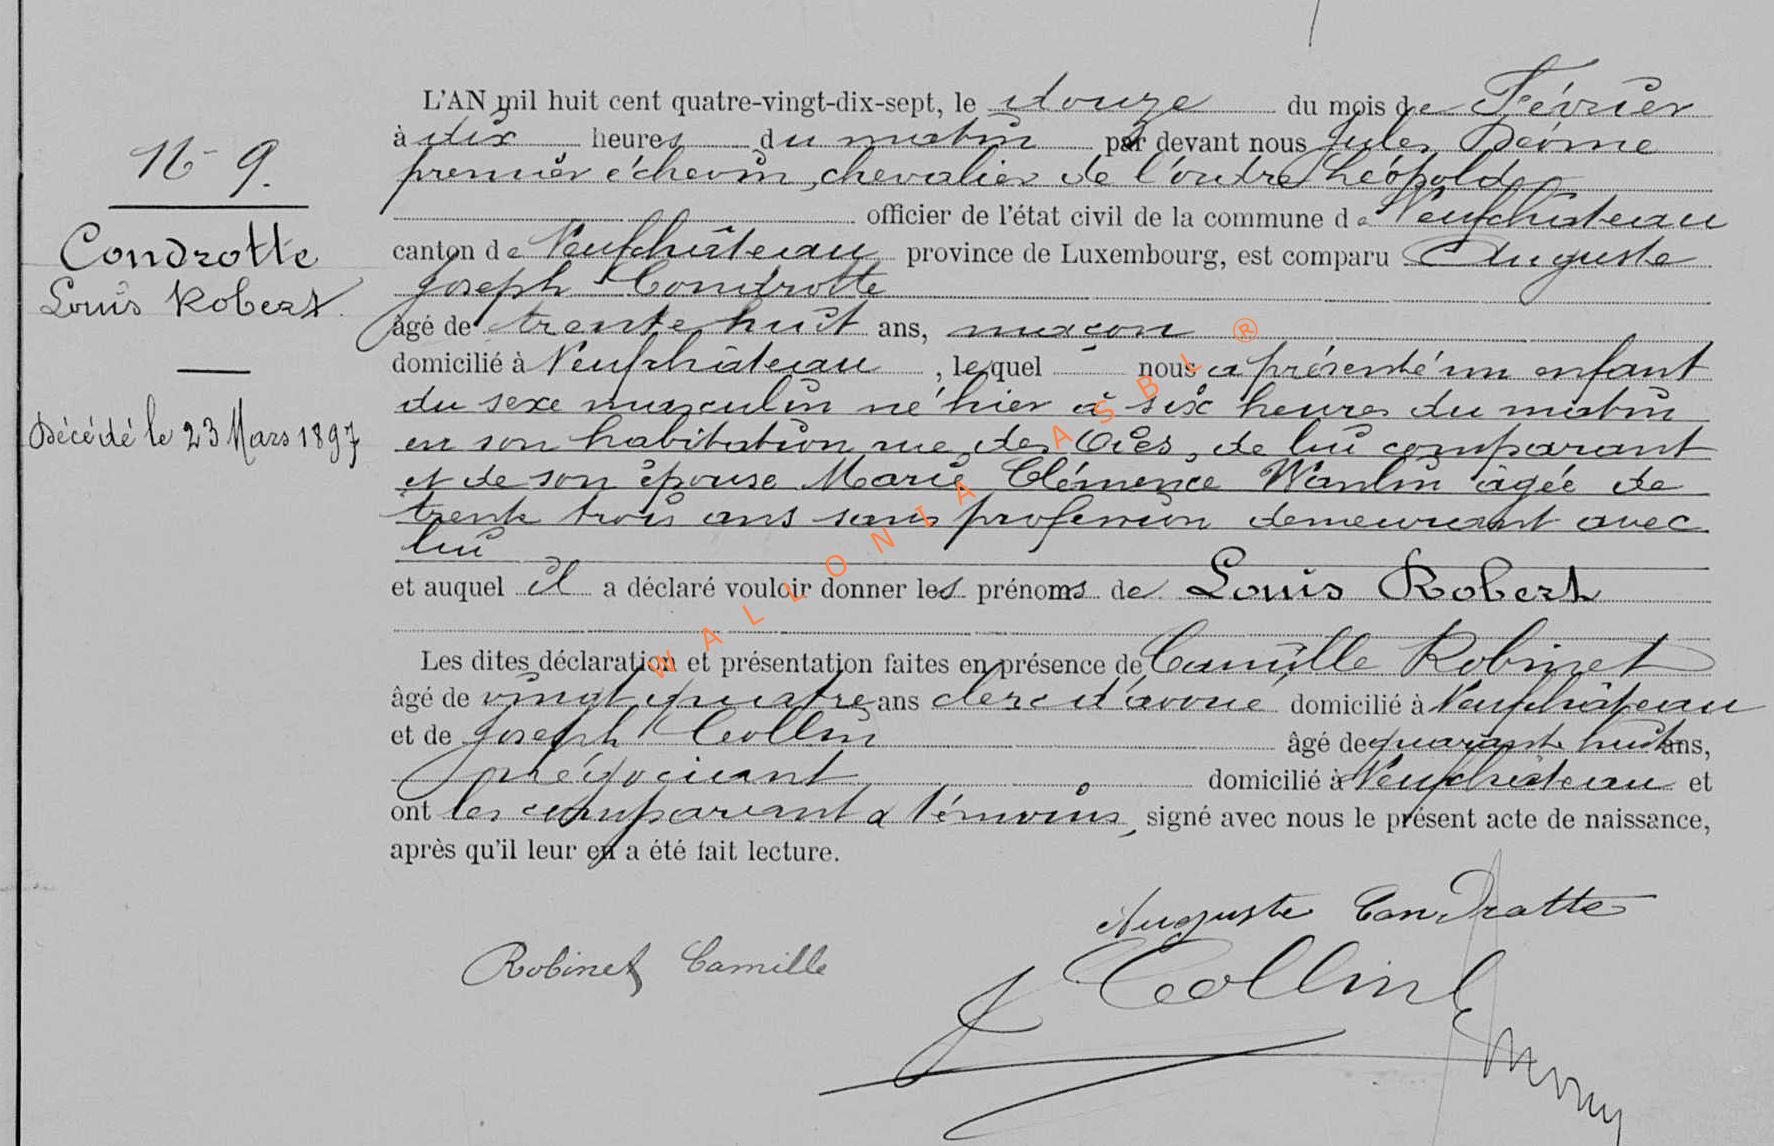 N° 9.
Condrotte
Louis Robert.
Décédé le 23 Mars 1897
L'AN mil huit cent quatre-vingt-dix-sept, le douze du mois de Février
à dix heures du matin par devant nous Jules
premier échevin, chevalier de l'ordre Léopold
officier de l'état civil de la commune de Neufchâteau
canton de Neufchâteau province de Luxembourg, est comparu Auguste
Joseph Condrotte
âgé de trente huit ans, maçon
domicilié à Neufchâteau, lequel nous a présenté un enfant
du sexe masculin né hier à six heures du matin
en son habitation rue des Oies, de lui comparant
et de son épouse Marie Clémence Wanlin âgée de
trente trois ans sans profession demeurant avec
lui
et auquel il a déclaré vouloir donner les prénoms de Louis Robert
Les dites déclaration et présentation faites en présence de Camille Robinet
âgé de vingt quatre ans clerc d'avoué domicilié à Neufchâteau
et de Joseph Collin âgé de quarante huit ans,
négociant domicilié à Neufchâteau et
ont les comparant & témoins, signé avec nous le présent acte de naissance,
après qu'il leur en a été fait lecture.
Auguste Condrotte
Robinet Camille
J Collin
WALLONIA ASBL ®